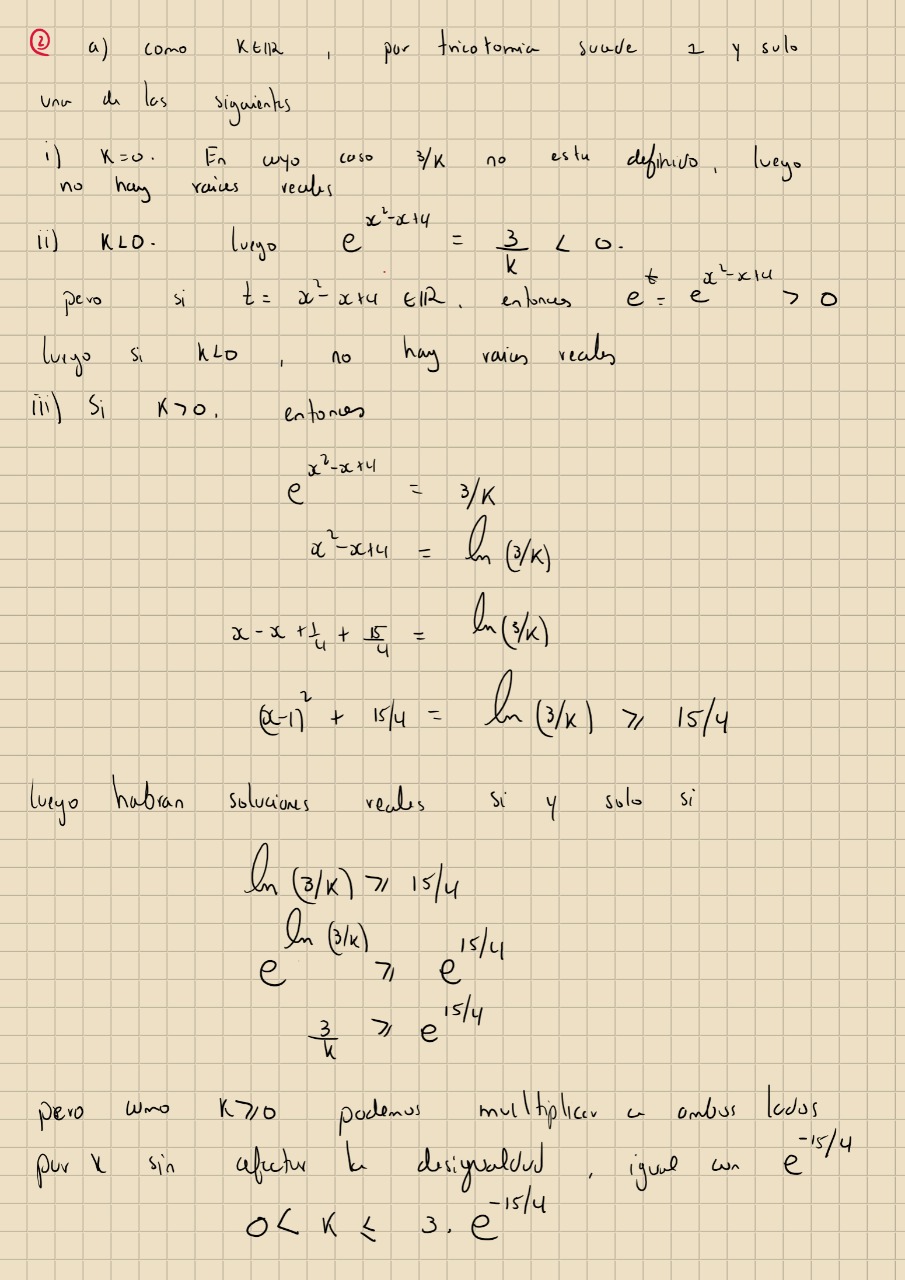 ② a) como K∈ℝ, por tricotomia sucede 1 y solo
una de las siguientes
i) K=0. En cuyo caso 3/K no esta definido, luego
no hay raices reales
ii) K<0. luego e^{x²-x+4} = 3/k < 0.
pero si t = x²-x+4 ∈ℝ. entonces e^t = e^{x²-x+4} > 0
luego si k<0, no hay raices reales
iii) Si K>0. entonces
e^{x²-x+4} = 3/K
x²-x+4 = ln(3/K)
x-x+1/4 + 15/4 = ln(3/K)
(x-1)² + 15/4 = ln(3/K) ⩾ 15/4
luego habran soluciones reales si y solo si
ln(3/K) ⩾ 15/4
e^{ln(3/K)} ⩾ e^{15/4}
3/k ⩾ e^{15/4}
pero como K⩾0 podemos multiplicar a ambos lados
por k sin afectar la desigualdad, igual con e^{-15/4}
0 < K ≤ 3. e^{-15/4}